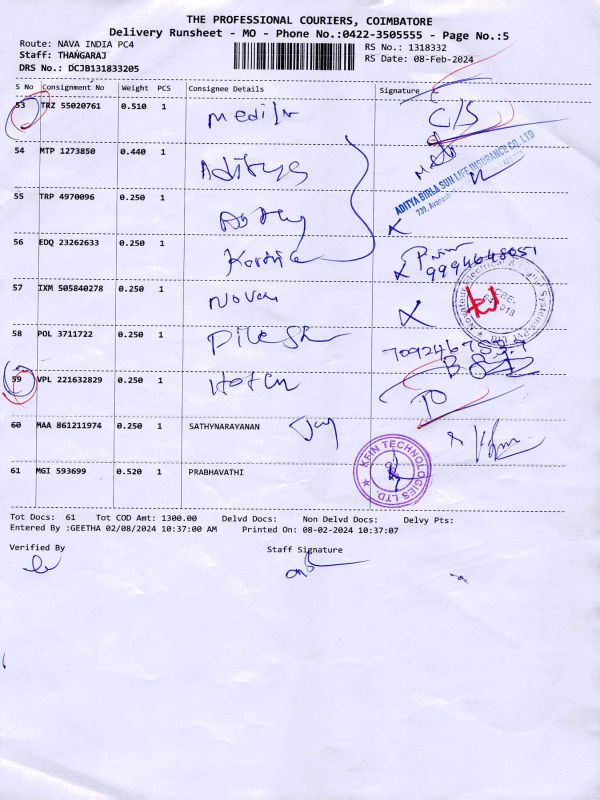 THE PROFESSIONAL COURIERS, COIMBATORE
Delivery Runsheet - MO - Phone No.:0422-3505555 - Page No.:5
Route: NAVA INDIA PC4
RS No.: 1318332
Staff: THANGARAJ
RS Date: 08-Feb-2024
DRS No.: DCJB131833205
S No Consignment No Weight PCS Consignee Details Signature
53 TRZ 55020761 0.510 1 C/S
54 MTP 1273850 0.440 1 Aditya
ADITYA BIRLA SUN LIFE INSURANCE CO. LTD
55 TRP 4970096 0.250 1
56 EDQ 23262633 0.250 1
9994648051
57 IXM 505840278 0.250 1
58 POL 3711722 0.250 1
59 VPL 221632829 0.250 1
60 MAA 861211974 0.250 1 SATHYNARAYANAN
61 MGI 593699 0.520 1 PRABHAVATHI
KFIN TECHNOLOGIES LTD
Tot Docs: 61 Tot COD Amt: 1300.00 Delvd Docs: Non Delvd Docs: Delvy Pts:
Entered By :GEETHA 02/08/2024 10:37:00 AM Printed On: 08-02-2024 10:37:07
Verified By Staff Signature